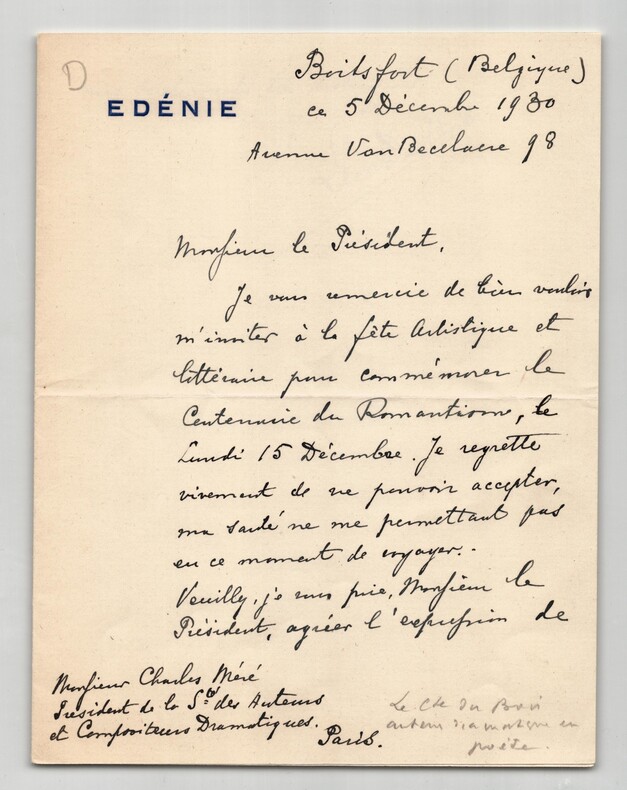 D
EDÉNIE
Boitsfort (Belgique)
ce 5 Décembre 1930
Avenue Van Becelaere 98
Monsieur le Président,
Je vous remercie de bien vouloir
m'inviter à la fête Artistique et
littéraire pour commémorer le
Centenaire du Romantisme, le
Lundi 15 Décembre. Je regrette
vivement de ne pouvoir accepter,
ma santé ne me permettant pas
en ce moment de voyager.
Veuillez, je vous prie, Monsieur le
Président, agréer l'expression de
Monsieur Charles Méré
Président de la Sté des Auteurs
et Compositeurs Dramatiques.
Paris.
Le Cte du Bois
auteur dramatique en
poète.